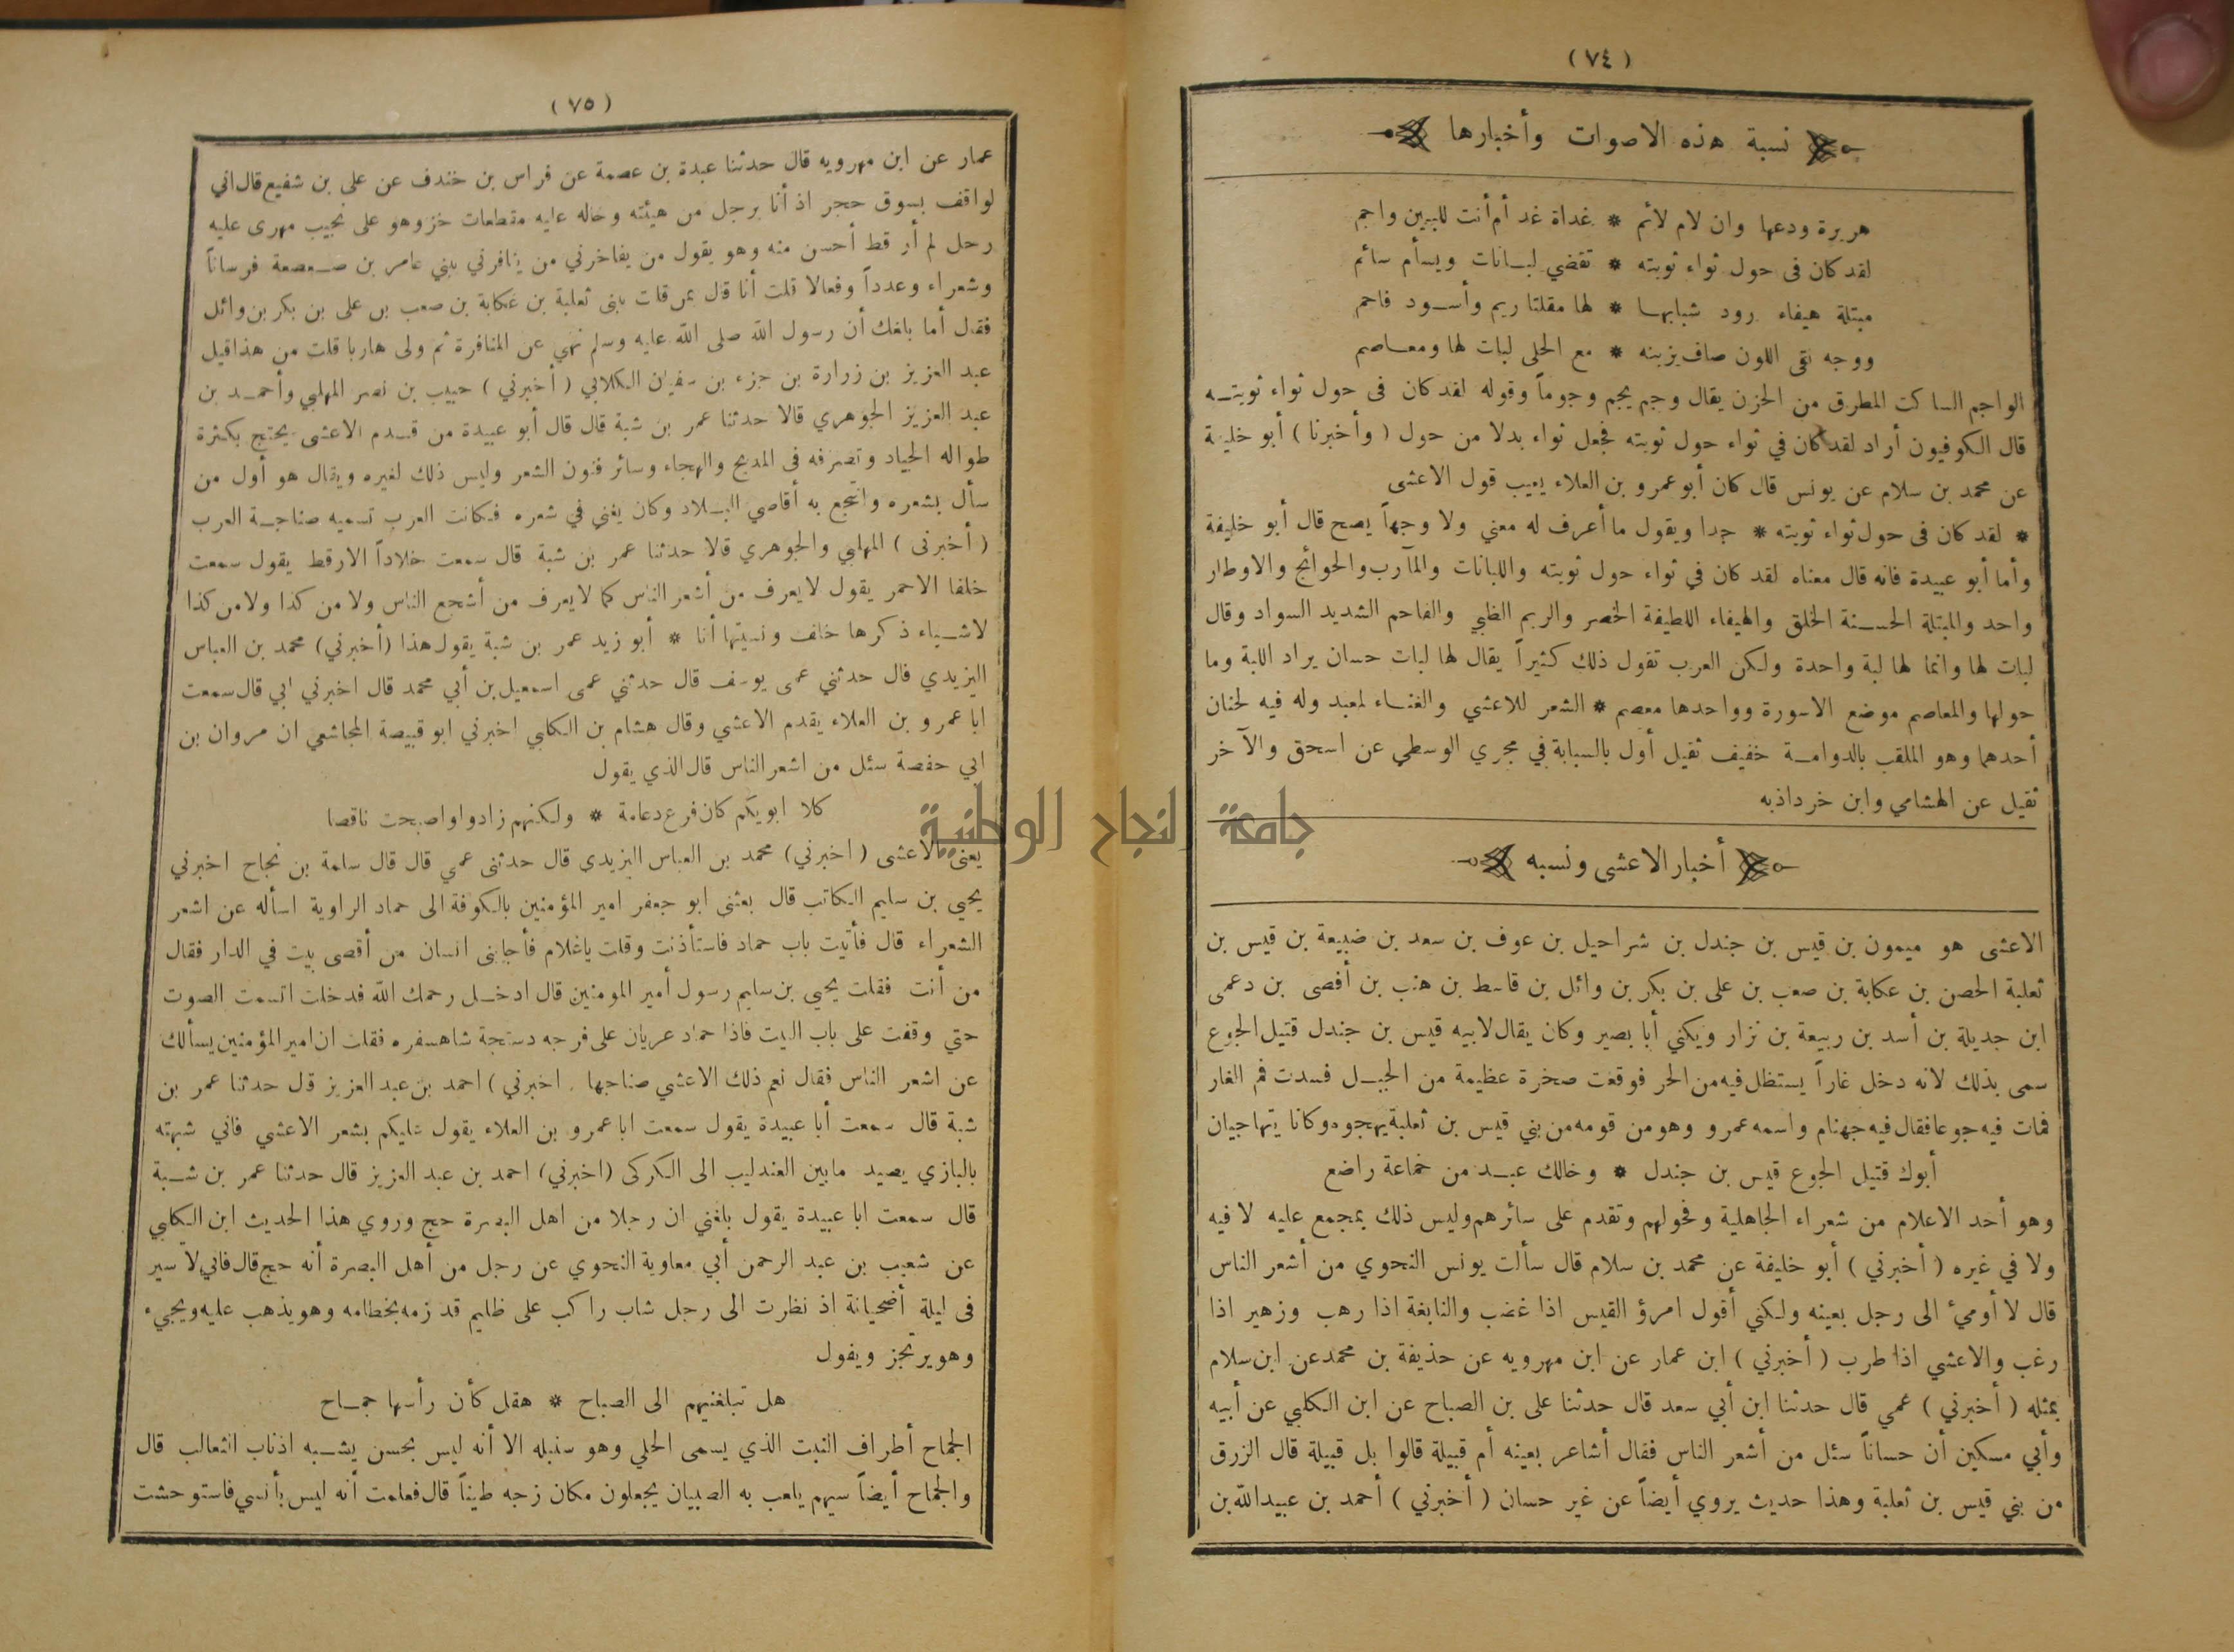 ( ٧٤ )
نسبة هذه الاصوات وأخبارها
هريرة ودعها وان لام لائم * غداة غد أم أنت للبين واجم
لقد كان فى حول ثواء ثويته * تقضي لبانات ويسأم سائم
مبتلة هيفاء رود شبابها * لها مقلتا ريم وأسود فاحم
ووجه نقى اللون صاف يزينه * مع الحلى لبات لها ومعاصم
الواجم الساكت المطرق من الحزن يقال وجم يجم وجوماً وقوله لقد كان فى حول ثواء ثويته
قال الكوفيون أراد لقد كان في ثواء حول ثويته فجعل ثواء بدلا من حول ( وأخبرنا ) أبو خليفة
عن محمد بن سلام عن يونس قال كان أبو عمرو بن العلاء يعيب قول الاعشى
* لقد كان فى حول ثواء ثويته * جدا ويقول ما أعرف له معني ولا وجهاً يصح قال أبو خليفة
وأما أبو عبيدة فانه قال معناه لقد كان في ثواء حول ثويته واللبانات والمآرب والحوائج والاوطار
واحد والمبتلة الحسنة الخلق والهيفاء اللطيفة الخصر والريم الظبي والفاحم الشديد السواد وقال
لبات لها وانما لها لبة واحدة ولكن العرب تقول ذلك كثيراً يقال لها لبات حسان يراد اللبة وما
حولها والمعاصم موضع الاسورة وواحدها معصم * الشعر للاعشي والغناء لمعبد وله فيه لحنان
أحدهما وهو الملقب بالدوامة خفيف ثقيل أول بالسبابة في مجري الوسطي عن اسحق والآخر
ثقيل عن الهشامي وابن خرداذبه
أخبار الاعشى ونسبه
الاعشى هو ميمون بن قيس بن جندل بن شراحيل بن عوف بن سعد بن ضبيعة بن قيس بن
ثعلبة الحصن بن عكابة بن صعب بن على بن بكر بن وائل بن قاسط بن هنب بن أفصى بن دعمى
ابن جديلة بن أسد بن ربيعة بن نزار ويكني أبا بصير وكان يقال لابيه قيس بن جندل قتيل الجوع
سمى بذلك لانه دخل غاراً يستظل فيه من الحر فوقعت صخرة عظيمة من الجبل فسدت فم الغار
فمات فيه جوعا فقال فيه جهنام واسمه عمرو وهو من قومه من بني قيس بن ثعلبة يهجوه وكانا يتهاجيان
أبوك قتيل الجوع قيس بن جندل * وخالك عبد من خماعة راضع
وهو أحد الاعلام من شعراء الجاهلية وفحولهم وتقدم على سائرهم وليس ذلك بمجمع عليه لا فيه
ولا في غيره ( أخبرني ) أبو خليفة عن محمد بن سلام قال سألت يونس النحوي من أشعر الناس
قال لا أومئ الى رجل بعينه ولكني أقول امرؤ القيس اذا غضب والنابغة اذا رهب وزهير اذا
رغب والاعشي اذا طرب ( أخبرني ) ابن عمار عن ابن مهرويه عن حذيفة بن محمد عن ابن سلام
بمثله ( أخبرني ) عمي قال حدثنا ابن أبي سعد قال حدثنا على بن الصباح عن ابن الكلبي عن أبيه
وأبي مسكين أن حساناً سئل من أشعر الناس فقال أشاعر بعينه أم قبيلة قالوا بل قبيلة قال الزرق
من بني قيس بن ثعلبة وهذا حديث يروي أيضاً عن غير حسان ( أخبرني ) أحمد بن عبيد الله بن
( ٧٥ )
عمار عن ابن مهرويه قال حدثنا عبدة بن عصمة عن فراس بن خندف عن على بن شفيع قال اني
لواقف بسوق حجر اذ أنا برجل من هيئته وحاله عليه مقطعات خز وهو على نجيب مهرى عليه
رحل لم أر قط أحسن منه وهو يقول من يفاخرني من ينافرني ببني عامر بن صعصعة فرساناً
وشعراء وعدداً وفعالا قلت أنا قال بمن قلت ببنى ثعلبة بن عكابة بن صعب بن على بن بكر بن وائل
فقال أما بلغك أن رسول الله صلى الله عليه وسلم نهي عن المنافرة ثم ولى هاربا قلت من هذا قيل
عبد العزيز بن زرارة بن جزء بن سفيان الكلابي ( أخبرني ) حبيب بن نصر المهلبي وأحمد بن
عبد العزيز الجوهري قالا حدثنا عمر بن شبة قال قال أبو عبيدة من قدم الاعشى يحتج بكثرة
طواله الجياد وتصرفه فى المديح والهجاء وسائر فنون الشعر وليس ذلك لغيره ويقال هو أول من
سأل بشعره وانتجع به أقاصي البلاد وكان يغني في شعره فكانت العرب تسميه صناجة العرب
( أخبرنى ) المهلبي والجوهري قالا حدثنا عمر بن شبة قال سمعت خلاداً الارقط يقول سمعت
خلفا الاحمر يقول لا يعرف من أشعر الناس كما لا يعرف من أشجع الناس ولا من كذا ولا من كذا
لاشياء ذكرها خلف ونسيتها أنا * أبو زيد عمر بن شبة يقول هذا (أخبرني) محمد بن العباس
اليزيدي قال حدثني عمى يوسف قال حدثني عمى اسمعيل بن أبي محمد قال اخبرني ابي قال سمعت
ابا عمرو بن العلاء يقدم الاعشي وقال هشام بن الكلبي اخبرني ابو قبيصة المجاشعي ان مروان بن
ابي حفصة سئل من اشعر الناس قال الذي يقول
كلا ابويكم كان فرع دعامة * ولكنهم زادوا واصبحت ناقصا
يعنى الاعشى ( اخبرني ) محمد بن العباس اليزيدى قال حدثنى عمي قال قال سلمة بن نجاح اخبرني
يحيي بن سليم الكاتب قال بعثنى ابو جعفر امير المؤمنين بالكوفة الى حماد الراوية اسأله عن اشعر
الشعراء قال فأتيت باب حماد فاستأذنت وقلت ياغلام فأجابنى انسان من أقصى بيت في الدار فقال
من أنت فقلت يحيى بن سليم رسول أمير المومنين قال ادخل رحمك الله فدخلت اتسمت الصوت
حتي وقفت على باب البيت فاذا حماد عريان على فرجه دستجة شاهسفره فقلت ان امير المؤمنين يسألك
عن اشعر الناس فقال نعم ذلك الاعشي صناجها ( اخبرني ) احمد بن عبد العزيز قال حدثنا عمر بن
شبة قال سمعت أبا عبيدة يقول سمعت ابا عمرو بن العلاء يقول عليكم بشعر الاعشي فاني شبهته
بالبازي يصيد مابين العندليب الى الكركى (اخبرني) احمد بن عبد العزيز قال حدثنا عمر بن شبة
قال سمعت ابا عبيدة يقول بلغني ان رجلا من اهل البصرة حج وروي هذا الحديث ابن الكلبي
عن شعيب بن عبد الرحمن أبي معاوية النحوي عن رجل من أهل البصرة أنه حج قال فاني لاسير
فى ليلة أضحيانة اذ نظرت الى رجل شاب راكب على ظليم قد زمه بخطامه وهو يذهب عليه ويجيء
وهو يرتجز ويقول
هل تبلغنيهم الى الصباح * هقل كأن رأسها جماح
الجماح أطراف النبت الذي يسمى الحلي وهو سنبله الا أنه ليس بحسن يشبه اذناب الثعالب قال
والجماح أيضاً سهم يلعب به الصبيان يجعلون مكان زجه طيناً قال فعلمت أنه ليس بأنسي فاستوحشت
جامعة النجاح الوطنية